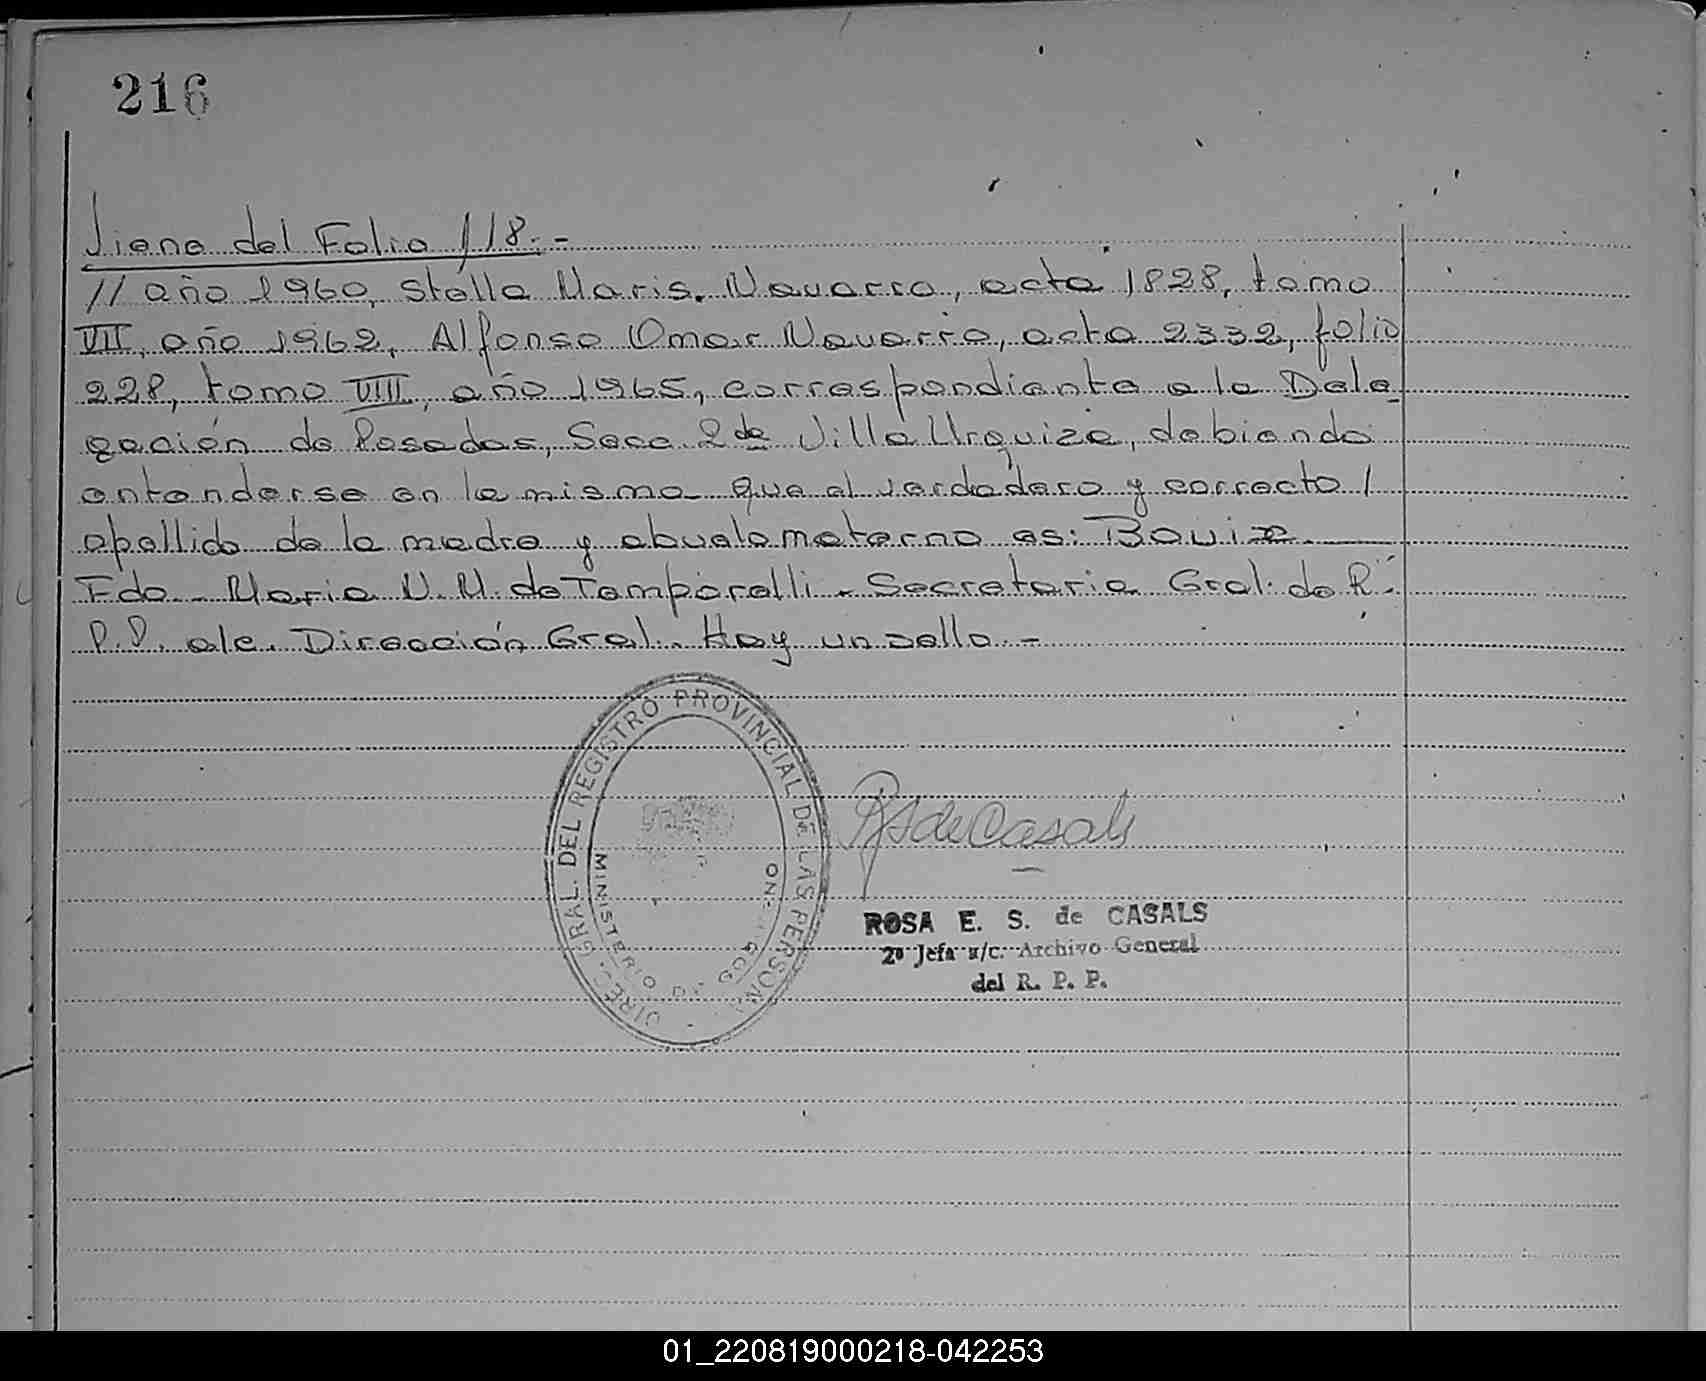 216
Viene del Folio 118.-
// año 1960, Stella Maris Navarro, acta 1828, tomo
VII, año 1962, Alfonso Omar Navarro, acta 2332, folio
228, tomo VIII, año 1965, correspondiente a la Dele
gación de Posadas, Secc. 2da Villa Urquiza, debiendo
entenderse en la misma que el verdadero y correcto /
apellido de la madre y abuelo materno es:
Fdo - Maria N. M. de Temporelli - Secretaria Gral. de R.
P.P. a/c. Dirección Gral. Hay un sello.-
DIREC. GRAL. DEL REGISTRO PROVINCIAL DE LAS PERSONA
MINISTERIO DE
RS de Casals
ROSA E. S. de CASALS
2º Jefa a/c. Archivo General
del R. P. P.
01_220819000218-042253